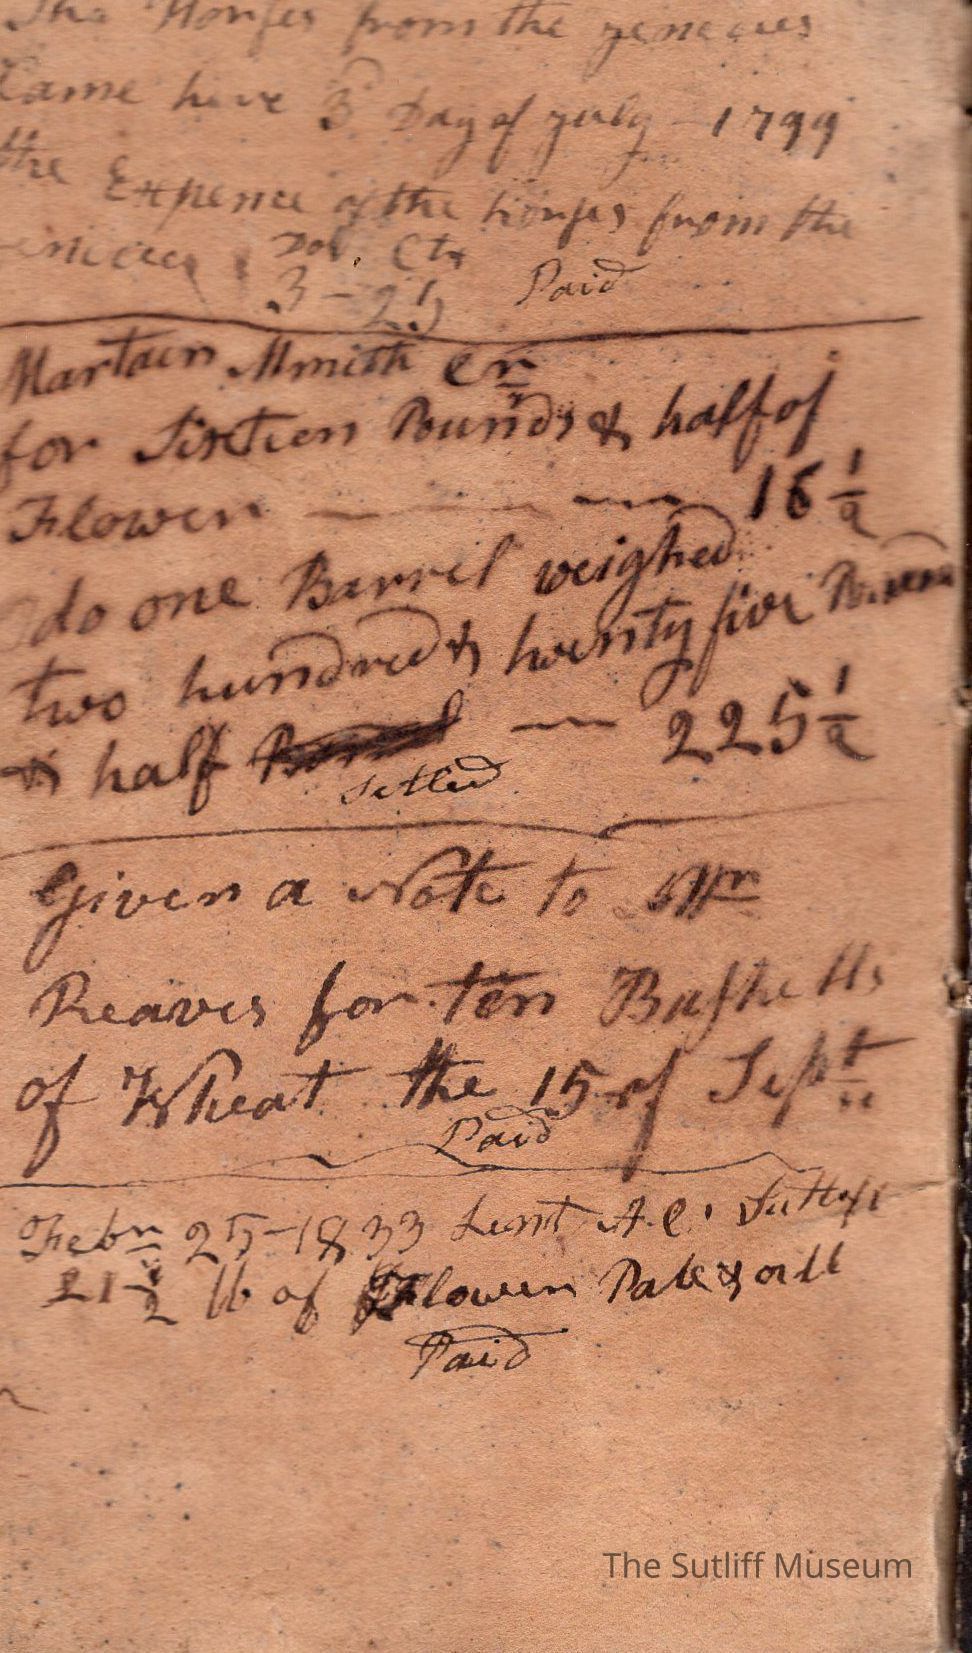 The Horses from the genecees
Came here 3 Day of july - 1799
the Expence of the horses from the
Dol. Cts
3 - 25 Paid
Martain Smith Cr
for Sixteen Pounds & half of
Flower — — 16 1/2
do one Barrel weighed
two hundred & twenty five Pound
& half — 225 1/2
Setled
Given a Note to Mr
Reaves for ten Bushells
of Wheat the 15 of Sept
Paid
Febr 25-1833 Lent A.C. Sutleff
21 1/2 lb of Flower Pale & all
Paid
The Sutliff Museum